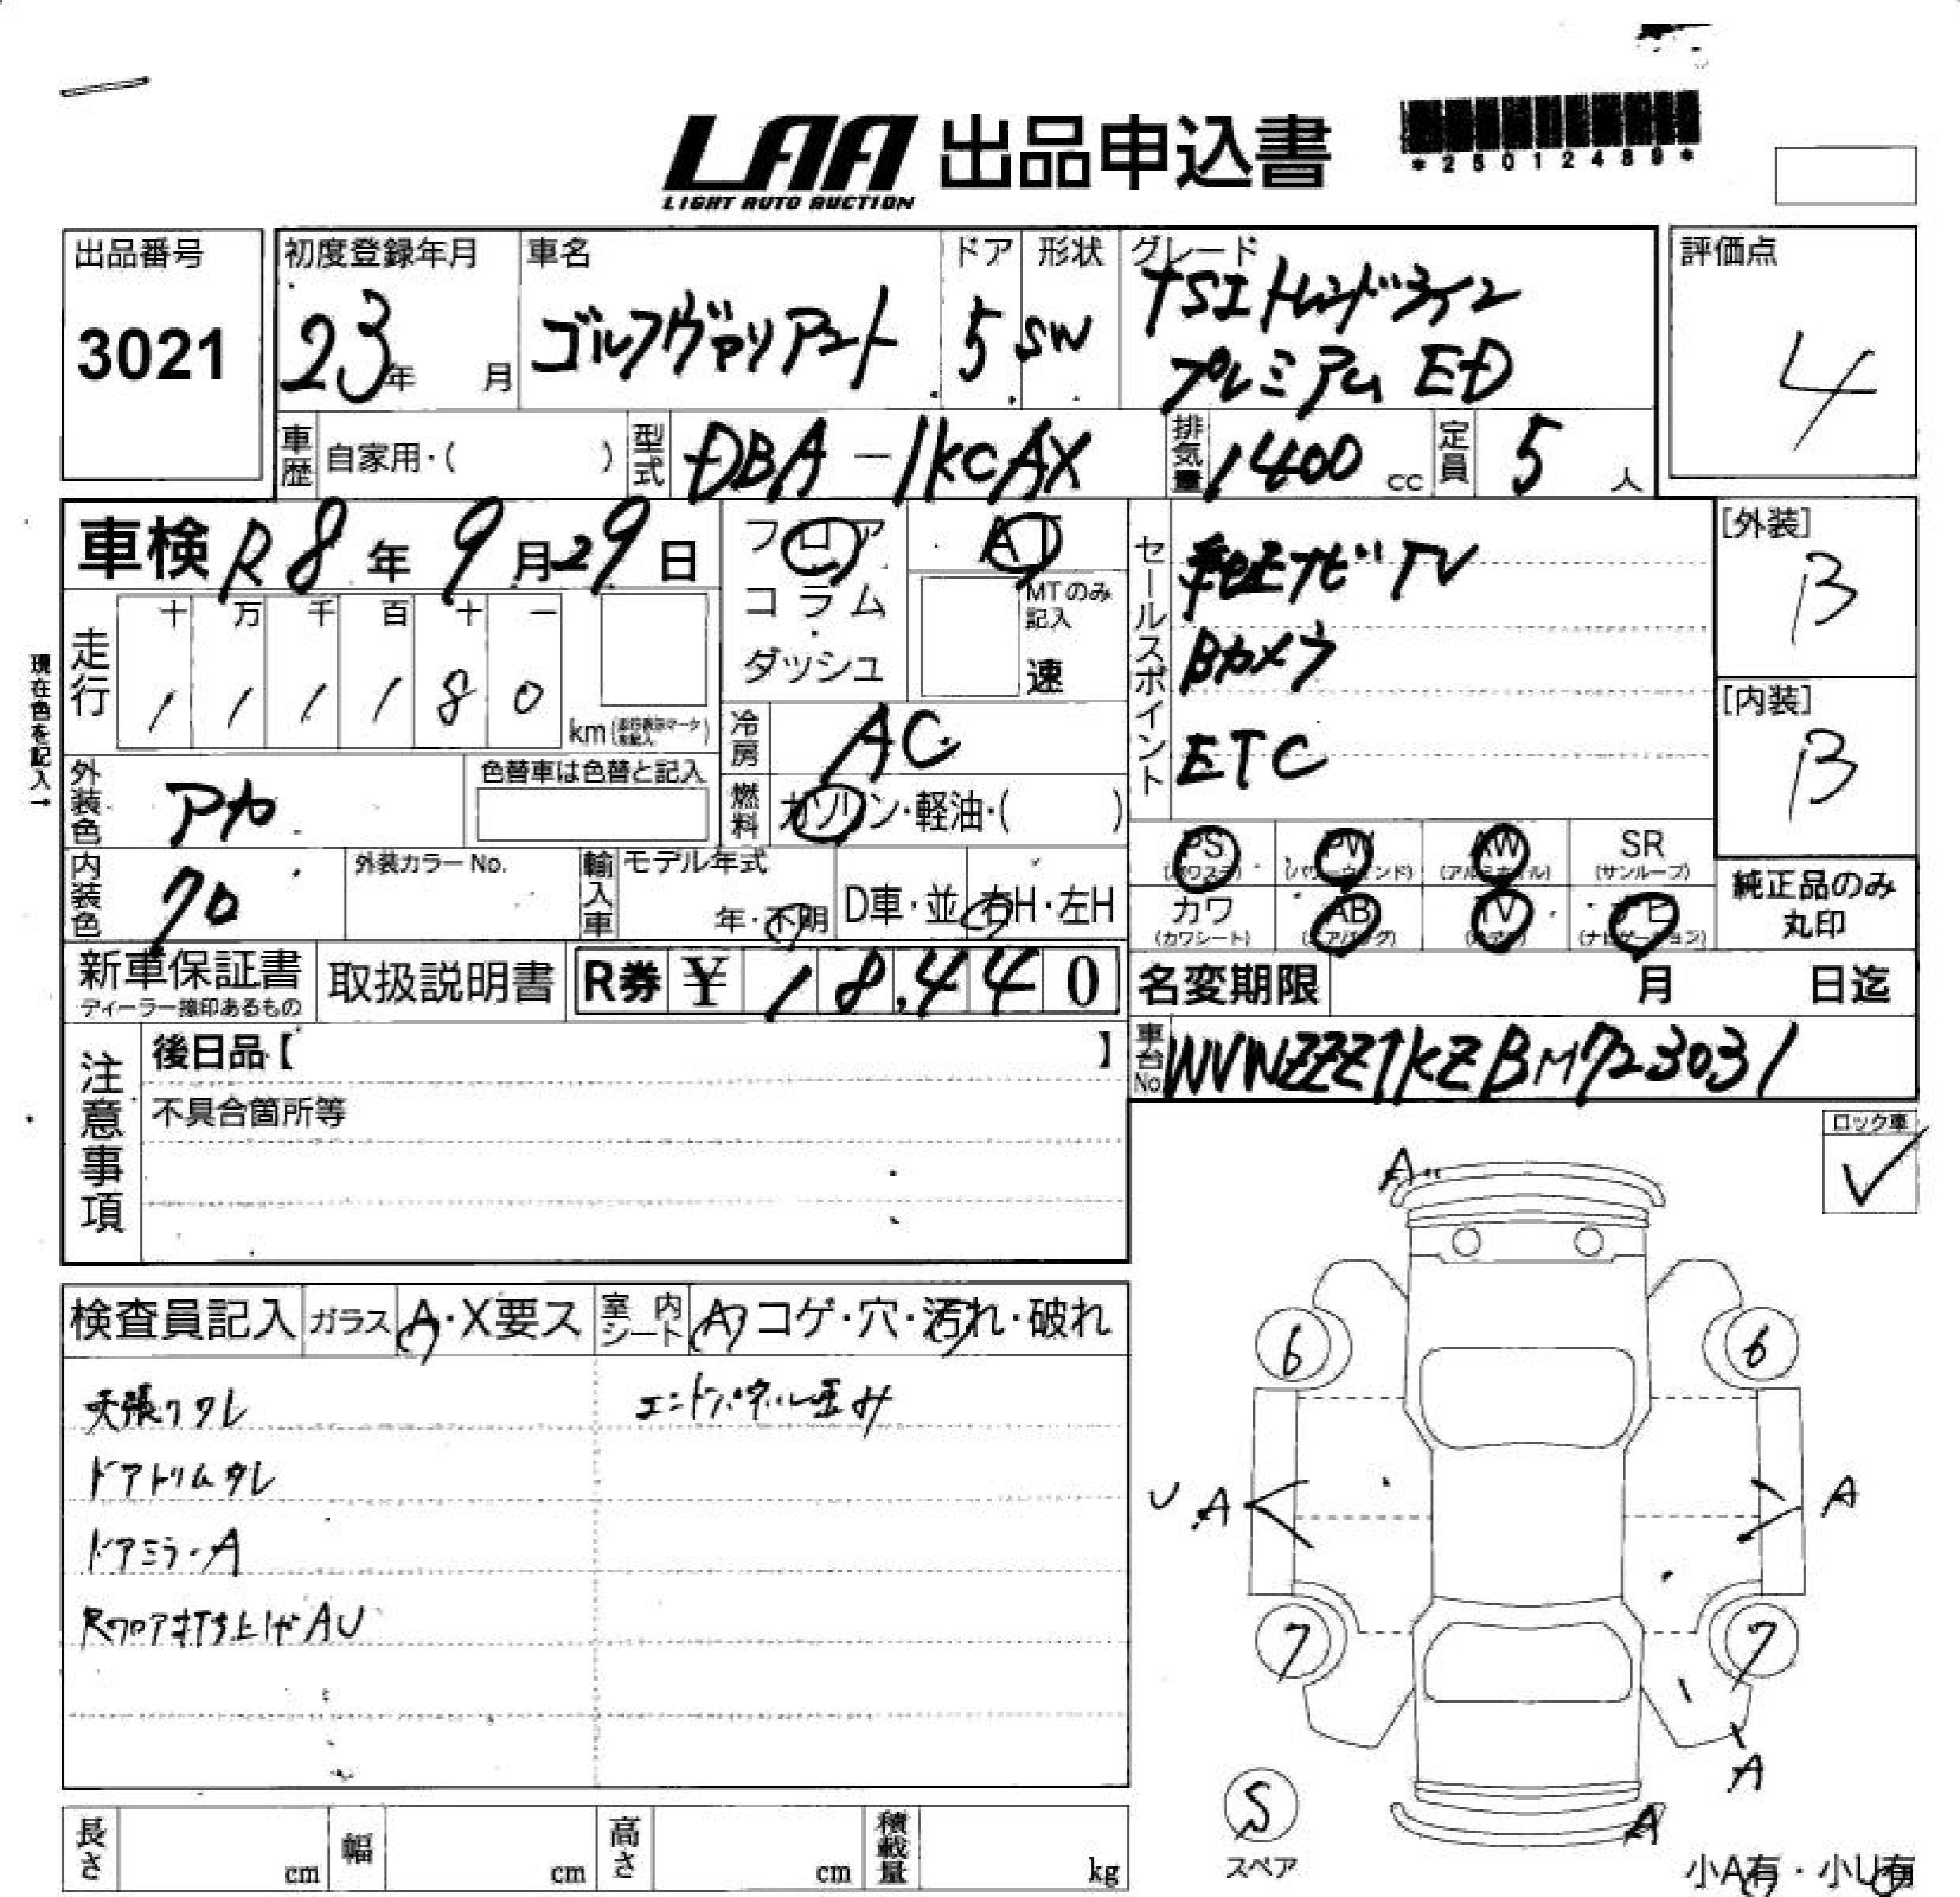 LAA 出品申込書
LIGHT AUTO AUCTION
*25012489*
出品番号
3021
初度登録年月
23年 月
車名
ゴルフヴァリアント
ドア
5
形状
SW
グレード
TSIトレンドライン
プレミアム ED
評価点
4
車歴 自家用・( )
型式 DBA-1KCAX
排気量 1400 cc
定員 5 人
車検 R8年9月29日
フロア
コラム
・
ダッシュ
AT
MTのみ記入
速
セールスポイント
純正ナビTV
Bカメラ
ETC
[外装]
B
[内装]
B
現在色を記入→
走行
十 万 千 百 十 一
1 1 1 1 8 0
km (走行表示マーク未記入)
冷房 AC
燃料 ガソリン・軽油・( )
外装色 アカ
色替車は色替と記入
内装色 クロ
外装カラーNo.
輸入車
モデル年式
年・不明
D車・並 右H・左H
PS (パワステ)
PW (パワーウィンド)
AW (アルミホイル)
SR (サンルーフ)
カワ (カワシート)
AB (エアバッグ)
TV (テレビ)
ナビ (ナビゲーション)
純正品のみ
丸印
新車保証書
ディーラー捺印あるもの
取扱説明書
R券 ¥ 18,440
名変期限 月 日迄
車台No. WVWZZZ1KZBM723031
注意事項
後日品【 】
不具合箇所等
ロック車
✓
検査員記入 ガラス A・X要ス 室内シート A コゲ・穴・汚れ・破れ
天張リタレ
エンドパネル歪み
ドアトリムタレ
ドアミラーA
Rフロア打ち上げAU
A
6
6
U A
A
7
7
A
A
S
スペア
小A有・小U有
長さ cm
幅 cm
高さ cm
積載量 kg